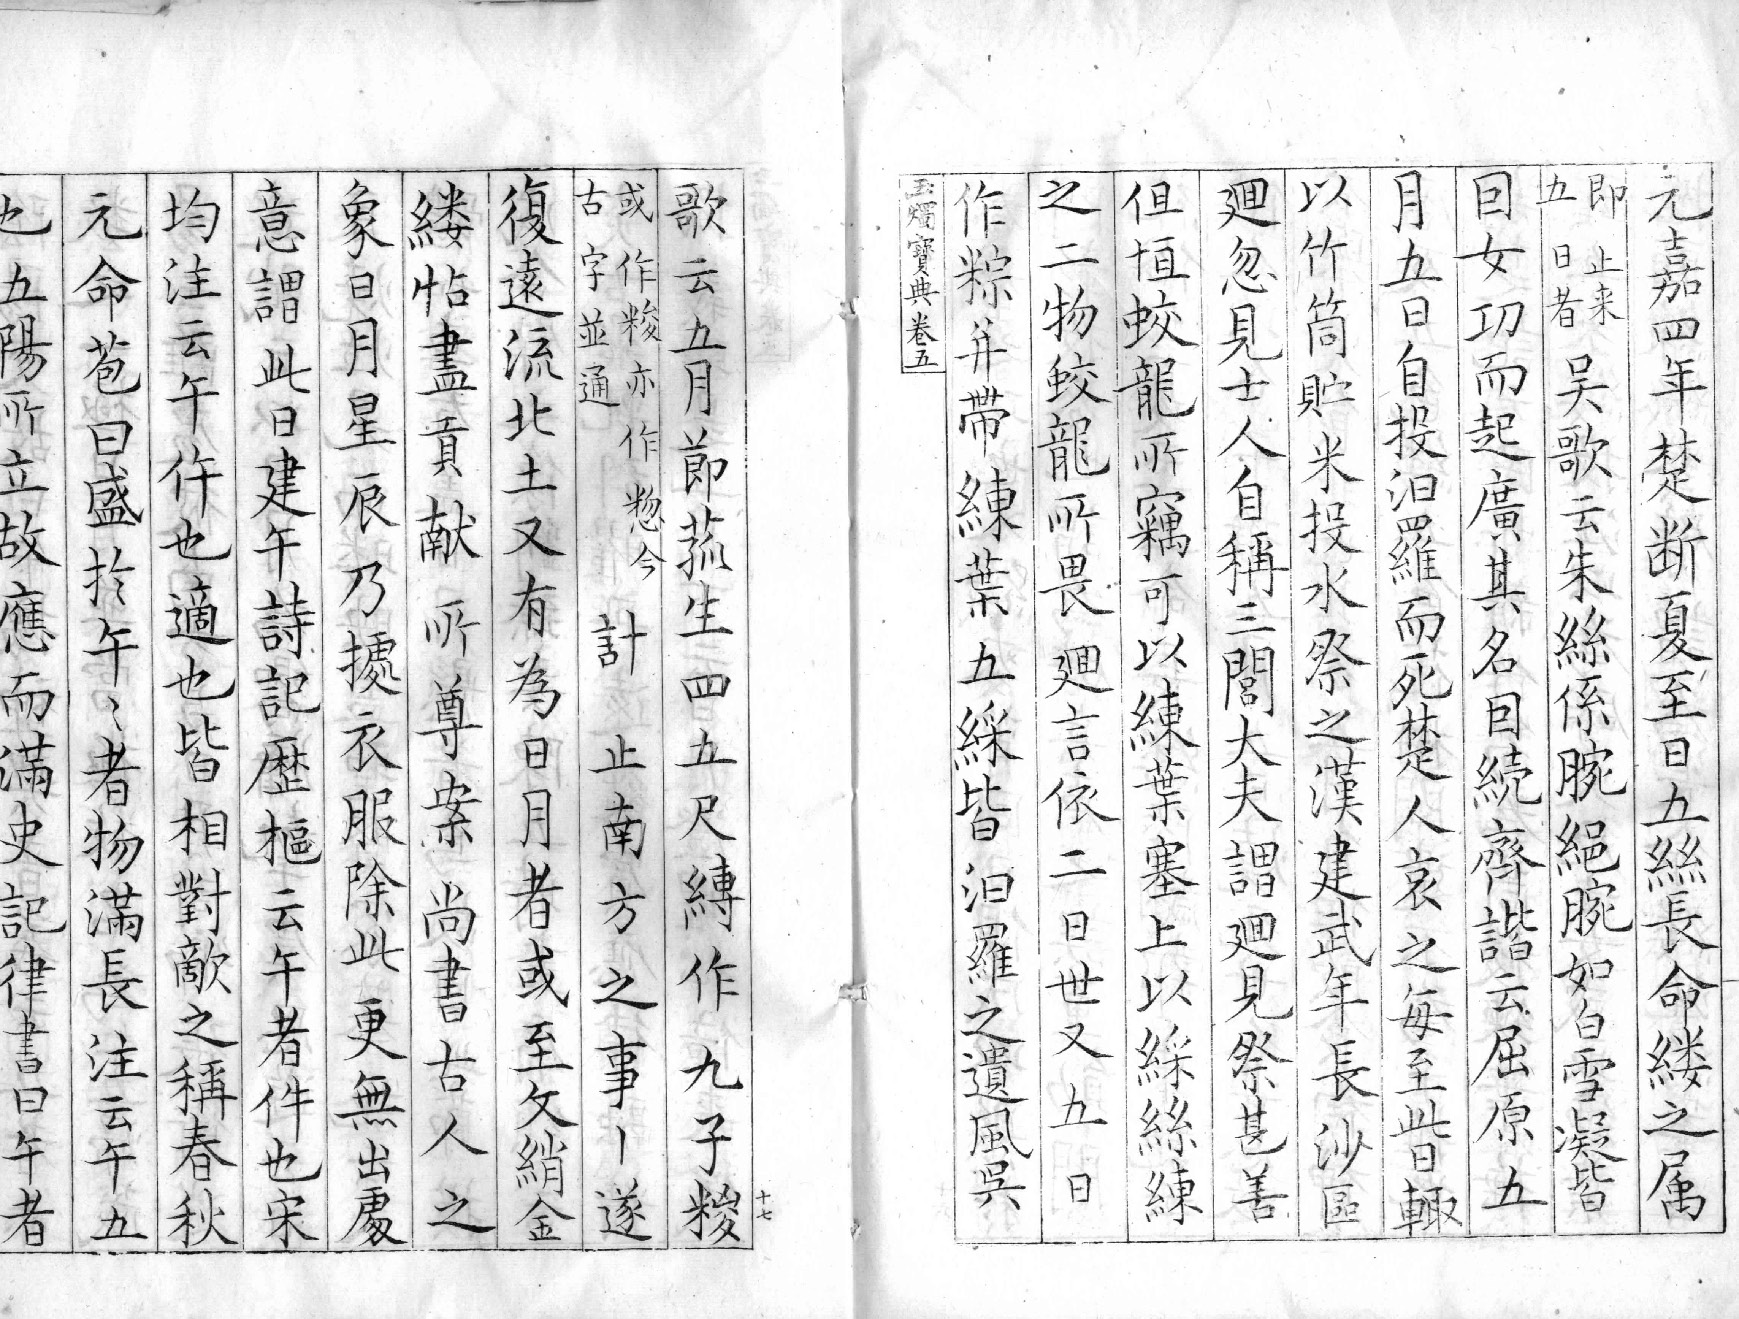 元嘉四年楚断夏至日五絲長命縷之属
即止来
五日者
吴歌云朱絲係腕絕腕如白雪凝皆
囙女功而起廣其名囙続齊諧云屈原五
月五日自投汨羅而死楚人哀之每至此日輙
以竹筒貯米投水祭之漢建武年長沙區
廻忽見士人自稱三閭大夫謂廻見祭甚善
但恒蛟龍所竊可以練葉塞上以綵絲練
之二物蛟龍所畏廻言依二日世又五日
作粽并帶練葉五綵皆汨羅之遺風吳
玉燭寶典卷五
歌云五月節菰生四五尺縛作九子糉
或作糉亦作惣今
古字並通
計止南方之事丨遂
復遠流北土又有為日月者或至文綃金
縷帖畫貢献所尊案尚書古人之
象日月星辰乃㩀衣服除此更無出處
意謂此日建午詩記歷樞云午者仵也宋
均注云午仵也適也皆相對敵之稱春秋
元命苞曰盛於午〻者物滿長注云午五
也五陽所立故應而滿史記律書曰午者
十七